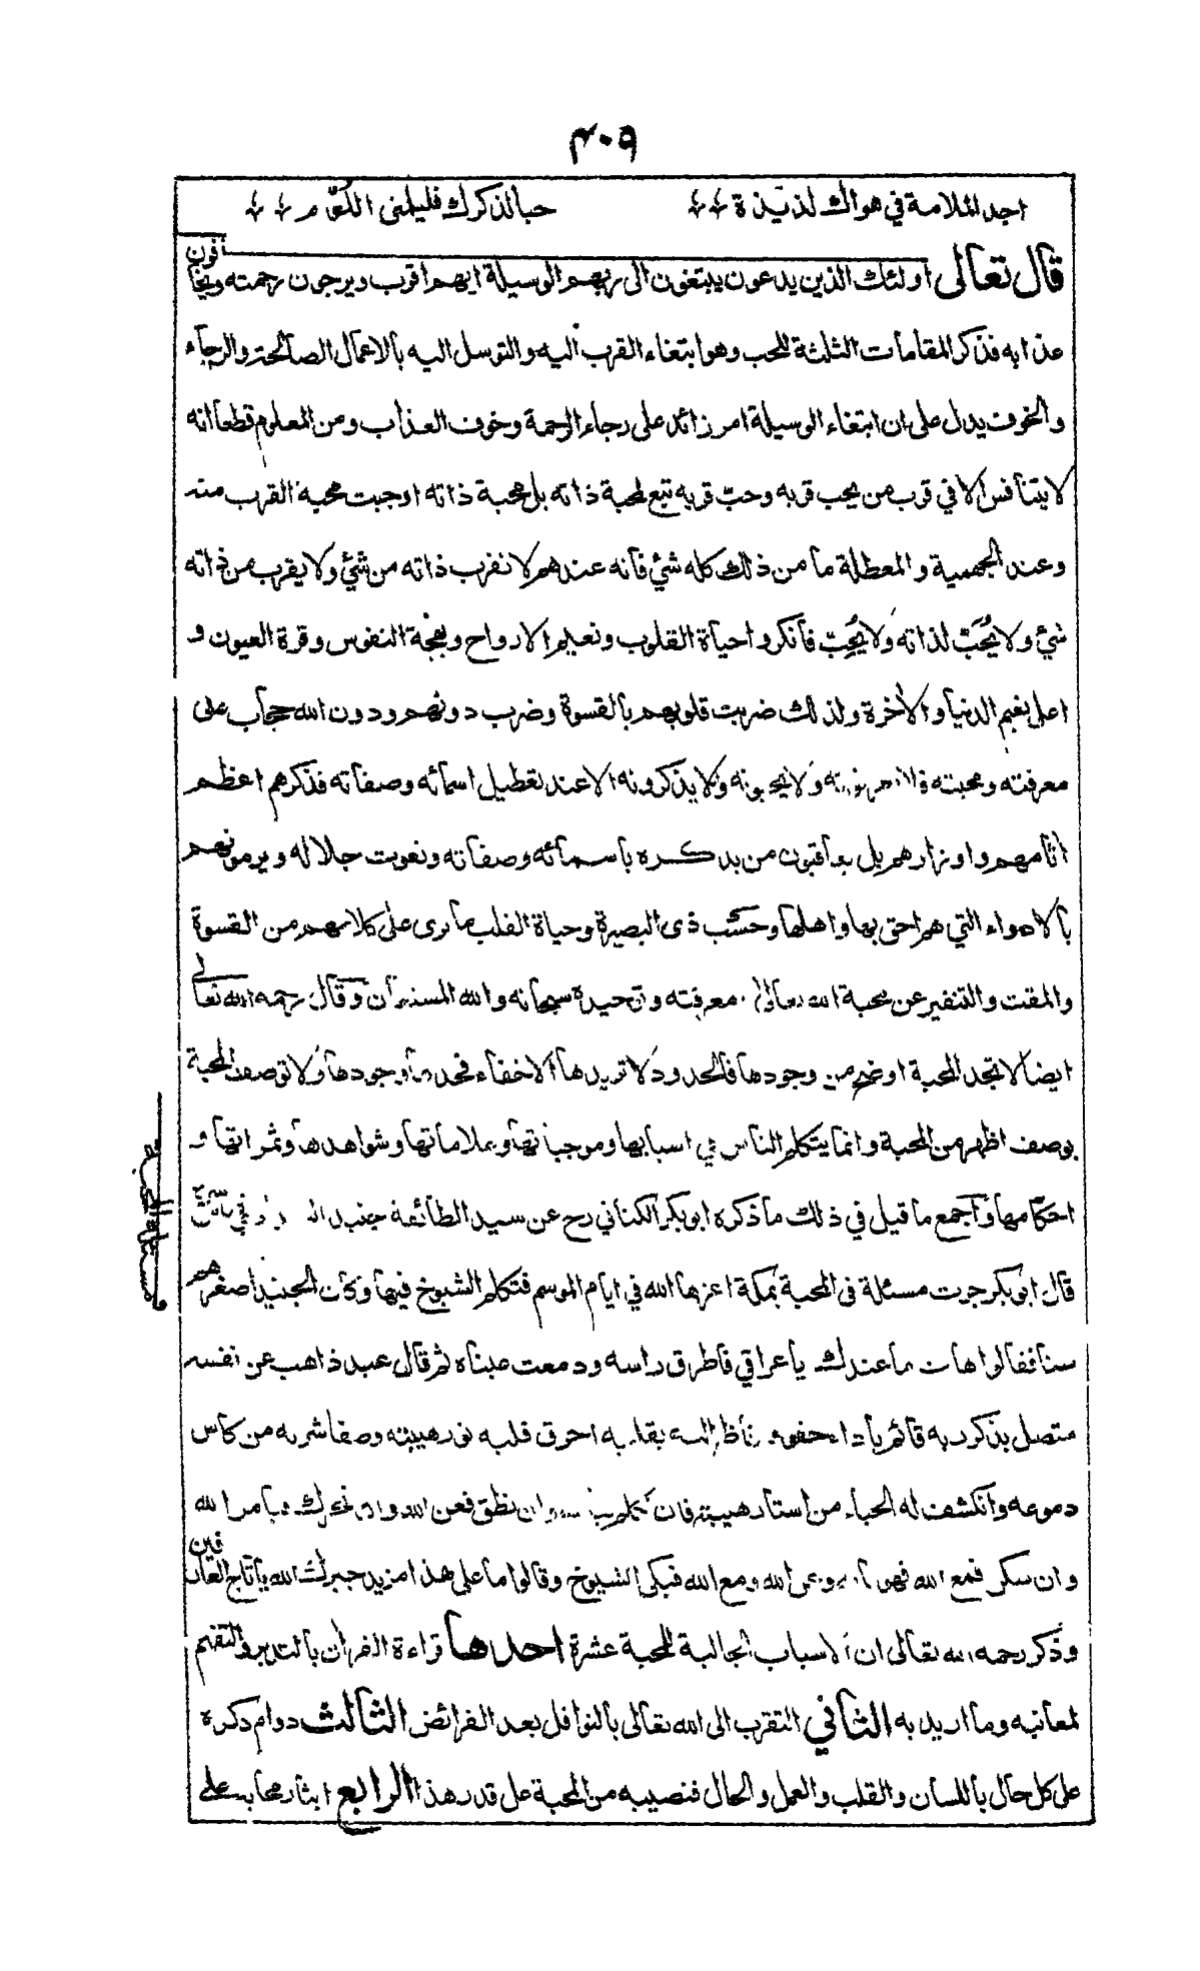 ٣٠٩
اجد الملامة في هواك لذيذة حبا لذكرك فليلمنى اللوّم
قال تعالى اولئك الذين يدعون يبتغون الى ربهم الوسيلة ايهم اقرب ويرجون رحمته ويخافون
عذابه فذكر المقامات الثلثة للحب وهو ابتغاء القرب اليه والتوسل اليه بالاعمال الصالحة والرجاء
والخوف يدل على ان ابتغاء الوسيلة امر زائد على رجاء الرحمة وخوف العذاب ومن المعلوم قطعا انه
لا يتنافس الا في قرب من يحب قربه وحبّ قربه تبع لمحبة ذاته بل محبة ذاته اوجبت محبة القرب منه
وعند الجهمية والمعطلة ما من ذلك كله شئ فانه عندهم لا تقرب ذاته من شئ ولا يقرب من ذاته
شئ ولا يُحَبّ لذاته ولا يُحِبّ فانكروا حياة القلوب ونعيم الارواح وبهجة النفوس وقرة العيون و
اعلى نعيم الدنيا والاخرة ولذلك ضربت قلوبهم بالقسوة وضرب دونهم ودون الله حجاب على
معرفته ومحبته فلا يعرفونه ولا يحبونه ولا يذكرونه الا عند تعطيل اسمائه وصفاته فذكرهم اعظم
اثامهم واوزارهم بل يعاقبون من يذكره باسمائه وصفاته ونعوت جلاله ويرمونهم
بالاهواء التي هم احق بها واهلها وحسب ذى البصيرة وحياة القلب ما يرى على كلامهم من القسوة
والمقت والتنفير عن محبة الله تعالى معرفته وتوحيده سبحانه والله المستعان وقال رحمه الله تعالى
ايضا لا تحد المحبة اوضح من وجودها فالحدود لا تزيدها الا خفاء فحدها وجودها ولا توصف المحبة
بوصف اظهر من المحبة وانما يتكلم الناس في اسبابها وموجباتها وعلاماتها وشواهدها وثمراتها و
احكامها واجمع ما قيل في ذلك ما ذكره ابو بكر الكتاني رح عن سيد الطائفة جنيد
قال ابو بكر جرت مسئلة فى المحبة بمكة اعزها الله في ايام الموسم فتكلم الشيوخ فيها وكان الجنيد اصغرهم
سنا فقالوا هات ما عندك يا عراقي فاطرق راسه ودمعت عيناه ثم قال عبد ذاهب عن نفسه
متصل بذكر ربه قائم باداء حقوقه ناظر اليه بقلبه احرق قلبه نور هيبته وصفا شربه من كاس
دموعه وانكشف له الحياء من استار هيبته فان تكلم وان نطق فعن الله وان تحرك فبامر الله
وان سكن فمع الله فهو ومع الله فبكى الشيوخ وقالوا ما على هذا مزيد جبرك الله يا تاج العارفين
وذكر رحمه الله تعالى ان الاسباب الجالبة للمحبة عشرة احدها قراءة القران بالتدبر والتفهم
لمعانيه وما اريد به الثاني التقرب الى الله تعالى بالنوافل بعد الفرائض الثالث دوام ذكره
على كل حال باللسان والقلب والعمل والحال فنصيبه من المحبة على قدر هذا الرابع ايثار محابه على